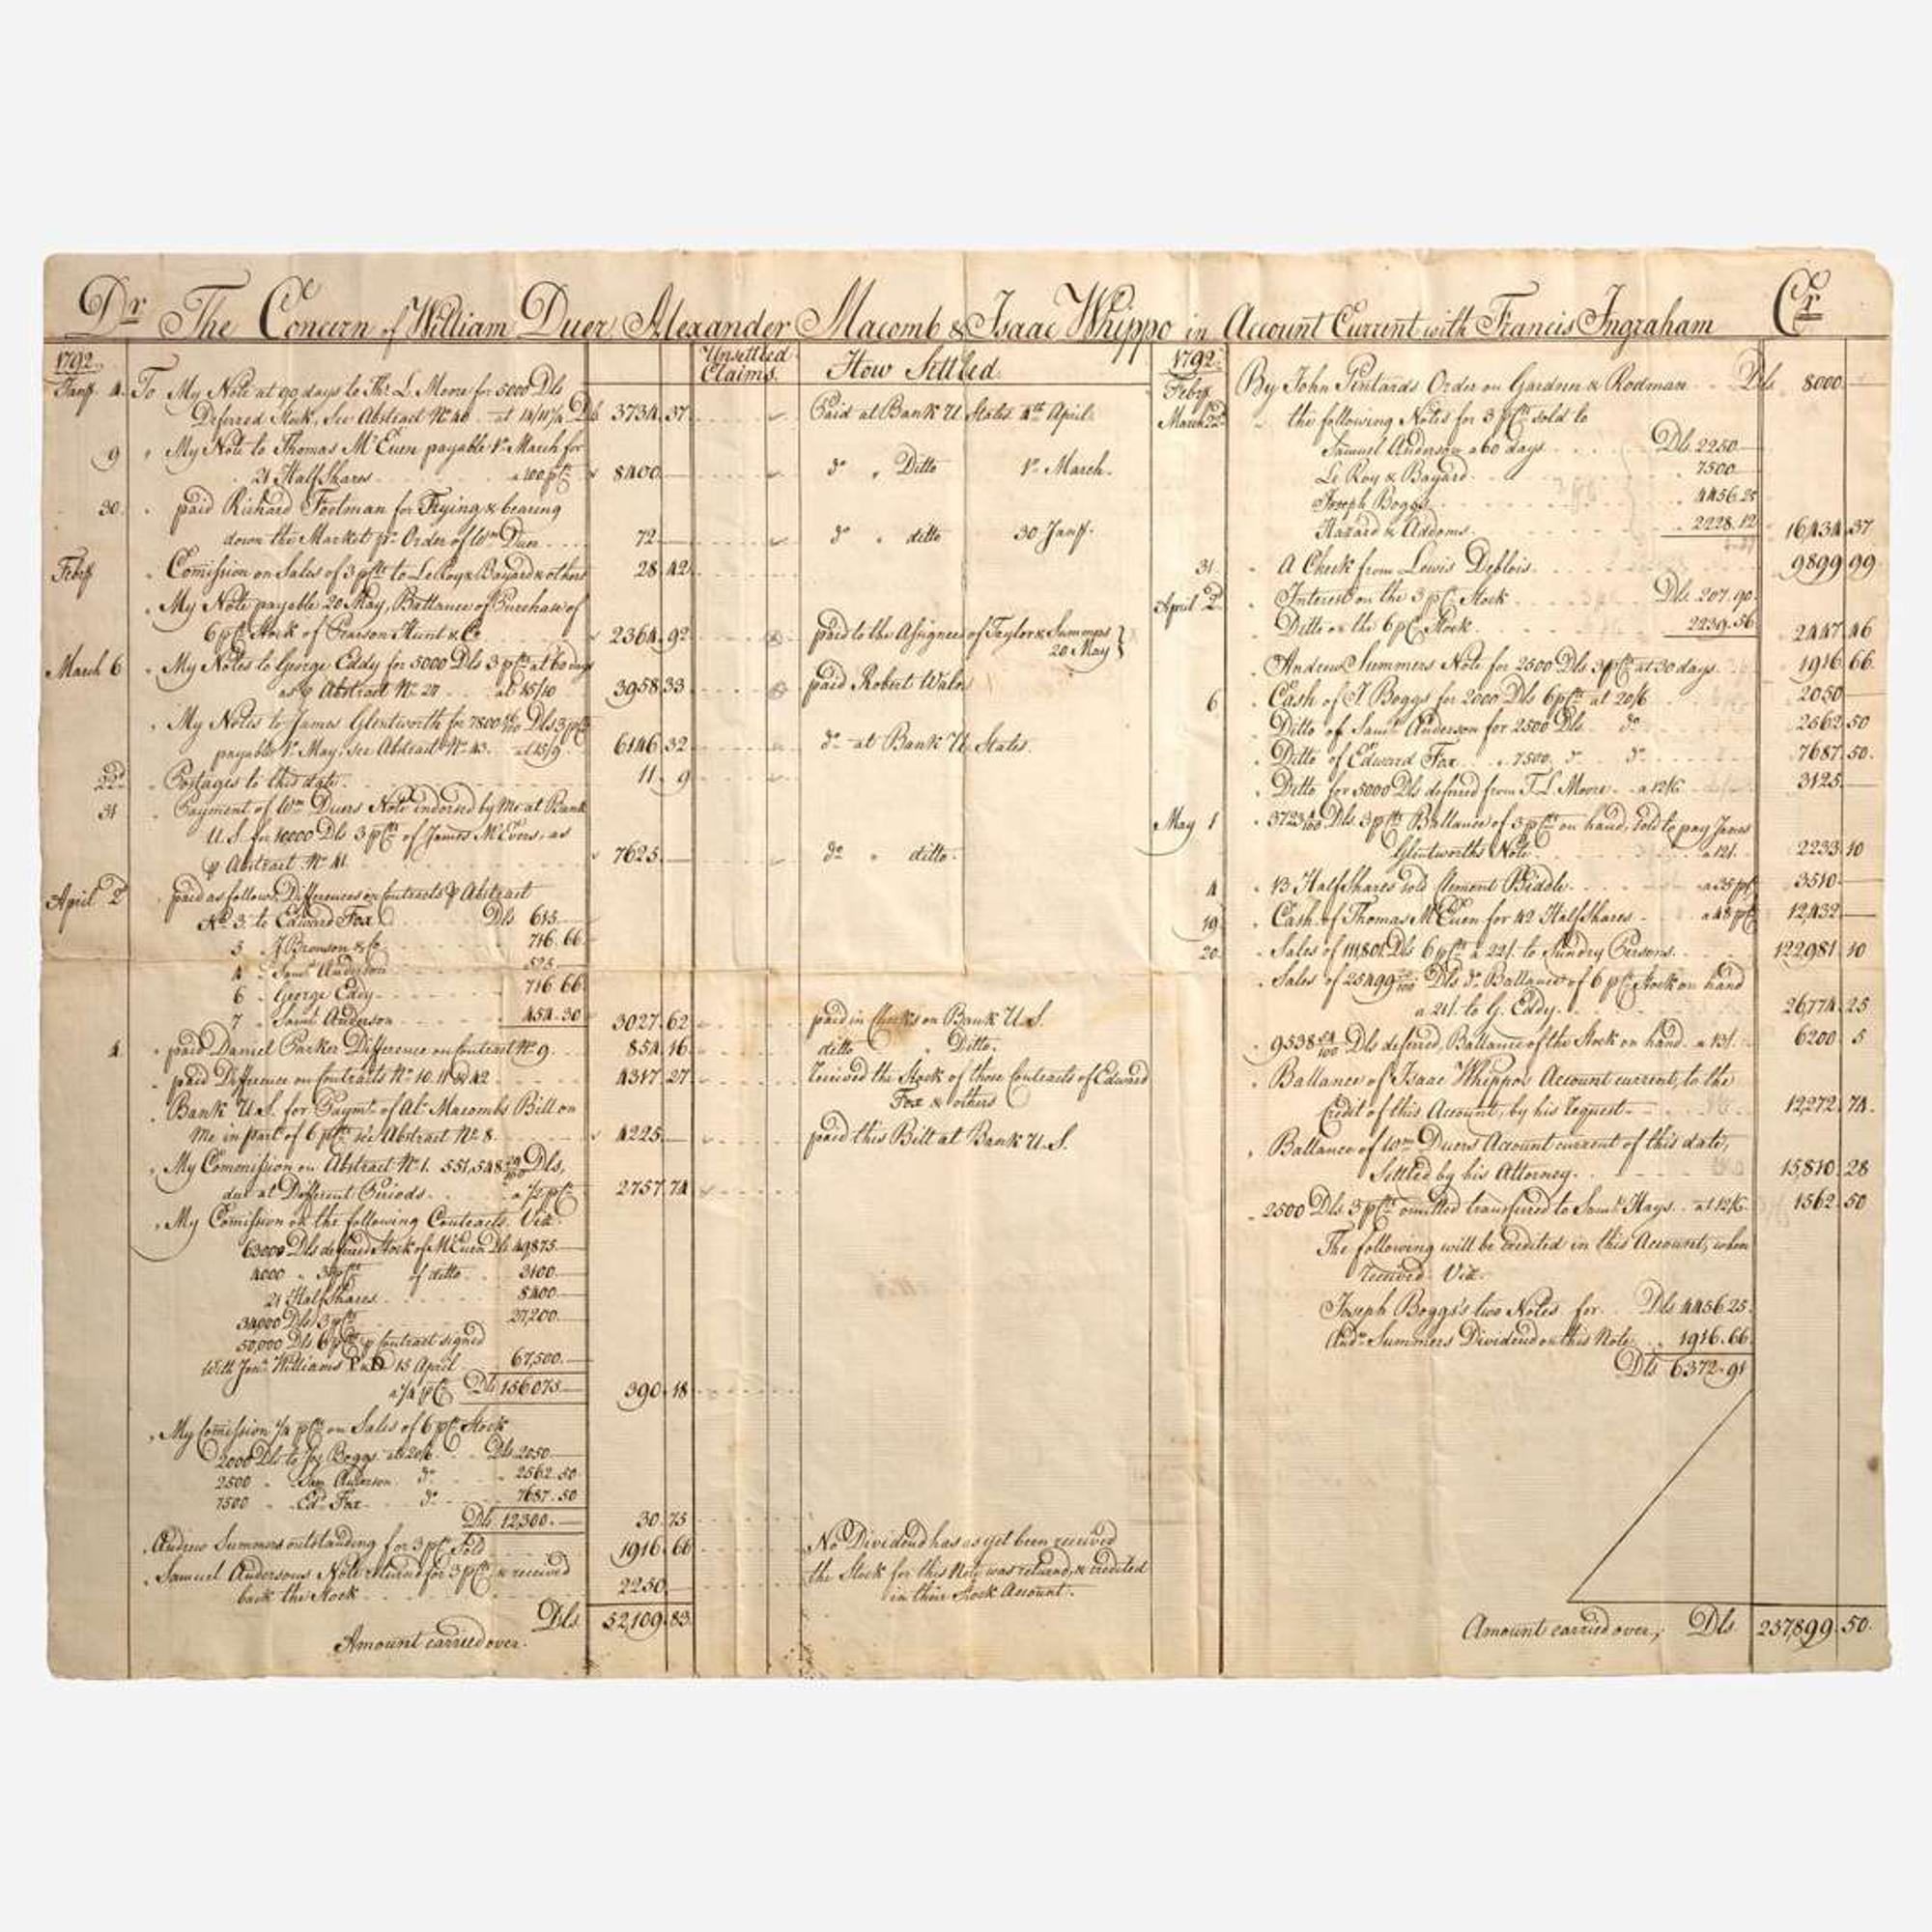 Dr The Concern of William Duer Alexander Macomb & Isaac Whippo in Account Current with Francis Ingraham Cr
1792
Jany 4 To My Note at 90 days to Ths L. Moore for 5000 Dls
Deferred Stock, See Abstract No 40 Dls 3734.37
9 " My Note to Thomas McEuen payable 1st March for
21 Half Shares a 100 pCt 8400
30 " paid Richard Footman for Trying & bearing
down the Market pr Order of Wm Duer 72
Feby " Comission on Sales of 3 pCts to LeRoy & Bayard & others 28.42
" My Note payable 20 May, Ballance of Purchase of
6 pCt Stock of Pearson Hunt & Co 2364.92
March 6 " My Notes to George Eddy for 5000 Dls 3 pCts at 60 days
as p Abstract No 27 at 15/10 3958.33
" My Notes to James Glentworth for 7800 Dls 3 pCts
payable 1st May, See Abstract No 43. at 15/9 6146.32
22d " Postages to this date 11.9
31 " Payment of Wm Duers Note indorsed by Me at Bank
U.S. for 10000 Dls 3 pCts of James McEvers, as
p Abstract No 41 7625
April 2d " paid as follows, Differences on Contracts p Abstract
No 3 to Edward Fox Dls 615
3 " J Bronson & Co 716.66
4 " Saml Anderson 525
6 " George Eddy 716.66
7 " Saml Anderson 454.30 3027.62
4 " paid Daniel Parker Difference on Contract No 9 854.16
" paid Difference on Contracts No 10. 11 & 42 4317.27
" Bank U.S. for Paymt of Alr Macombs Bill on
me in part of 6 pCts see Abstract No 8 4225
" My Commission on Abstract No 1. 551,548 Dls,
due at Different Periods a 1/2 pCt 2757.74
" My Comission on the following Contracts. Viz.
63000 Dls deferred Stock of McEuen Dls 49875
4000 " 3 pCts of ditto 3100
21 Half Shares 8400
34000 Dls 3 pCts 27,200
50,000 Dls 6 pCts p Contract signed
with Jona Williams 15 April 67,500
a 1/4 pCt Dls 156075 390.18
" My Comission 1/4 pCt on Sales of 6 pCt Stock
2000 Dls to Jos Boggs at 20/6 Dls 2050
2500 " Sam Anderson do 2562.50
7500 " Ed. Fox do 7687.50
Dls 12300 30.75
" Andrew Summers outstanding for 3 pCt Sold 1916.66
" Samuel Andersons Note returned for 3 pCt & received
back the Stock 2250
Dls 52,109.83
Amount carried over
Unsettled
Claims.
How Settled.
Paid at Bank U. States 4th April
do " Ditto 1st March.
do " ditto 30 Jany.
paid to the Assignees of Taylor & Summers
20 May
paid Robert Waln
do at Bank U. States.
do " ditto.
paid in Checks on Bank U.S.
ditto " Ditto.
received the Stock of those Contracts of Edward
Fox & others
paid this Bill at Bank U.S.
No Dividend has as yet been received
the Stock for this Note was returned, & credited
in their Stock Account.
1792
Feby By John Pintards Order on Gardner & Rodman Dls 8000
March 22d " the following Notes for 3 pCts sold to
Samuel Anderson a 60 days Dls 2250
Le Roy & Bayard 7500
Joseph Boggs 4456.25
Hazard & Addoms 2228.12 16,434.37
31 " A Check from Lewis Deblois 9899.99
April 2d " Interest on the 3 pCt Stock Dls 207.90
Ditto on the 6 pCt Stock 2239.56 2447.46
" Andrew Summers Note for 2500 Dls 3 pCts at 30 days 1916.66
6 " Cash of J Boggs for 2000 Dls 6 pCts at 20/6 2050
" Ditto of Saml Anderson for 2500 Dls do 2562.50
" Ditto of Edward Fox 7500 do do 7687.50
" Ditto for 5000 Dls deferred from T. L. Moore a 12/6 3125
May 1 " 3723 Dls 3 pCts Ballance of 3 pCts on hand, sold to pay James
Glentworths Note a 12/. 2233.10
4 " 13 Half Shares sold Clement Biddle a 35 pCt 3510
19 " Cash of Thomas McEuen for 42 Half Shares a 48 pCt 12,432
20 " Sales of 111,801 Dls 6 pCts a 22/. to Sundry Persons 122,981.10
" Sales of 25499 Dls do Ballance of 6 pCt Stock on hand
a 21/. to G. Eddy 26,774.25
" 9538 54/100 Dls deferred, Ballance of the Stock on hand a 13/. 6200.5
" Ballance of Isaac Whippo's Account current, to the
Credit of this Account, by his request 12,272.74
" Ballance of Wm Duers Account current of this date,
Settled by his Attorney 15,810.28
" 2500 Dls 3 pCts omitted transferred to Saml Hays at 12/6 1562.50
The following will be credited in this Account, when
received. Viz.
Joseph Boggs's two Notes for Dls 4456.25
Andw Summers Dividend on this Note 1916.66
Dls 6372.91
Amount carried over, Dls 257,899.50